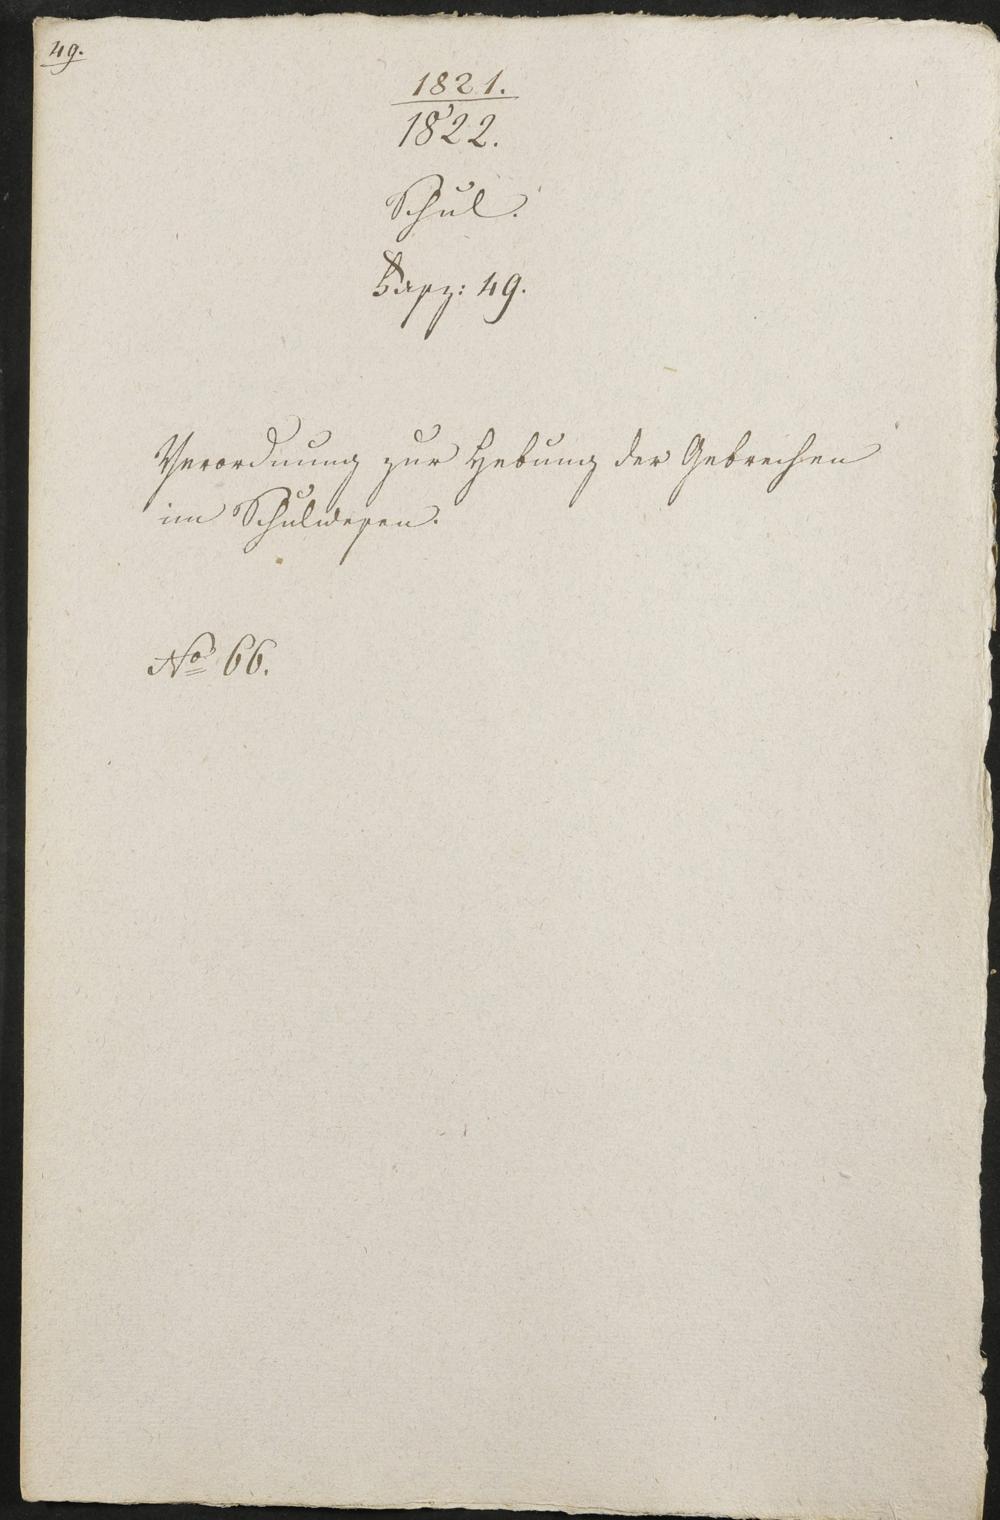 49.
1821.
1822.
Schul.
Fasz: 49.
Verordnung zur Hebung der Gebrechen
im Schulwesen.
No 66.